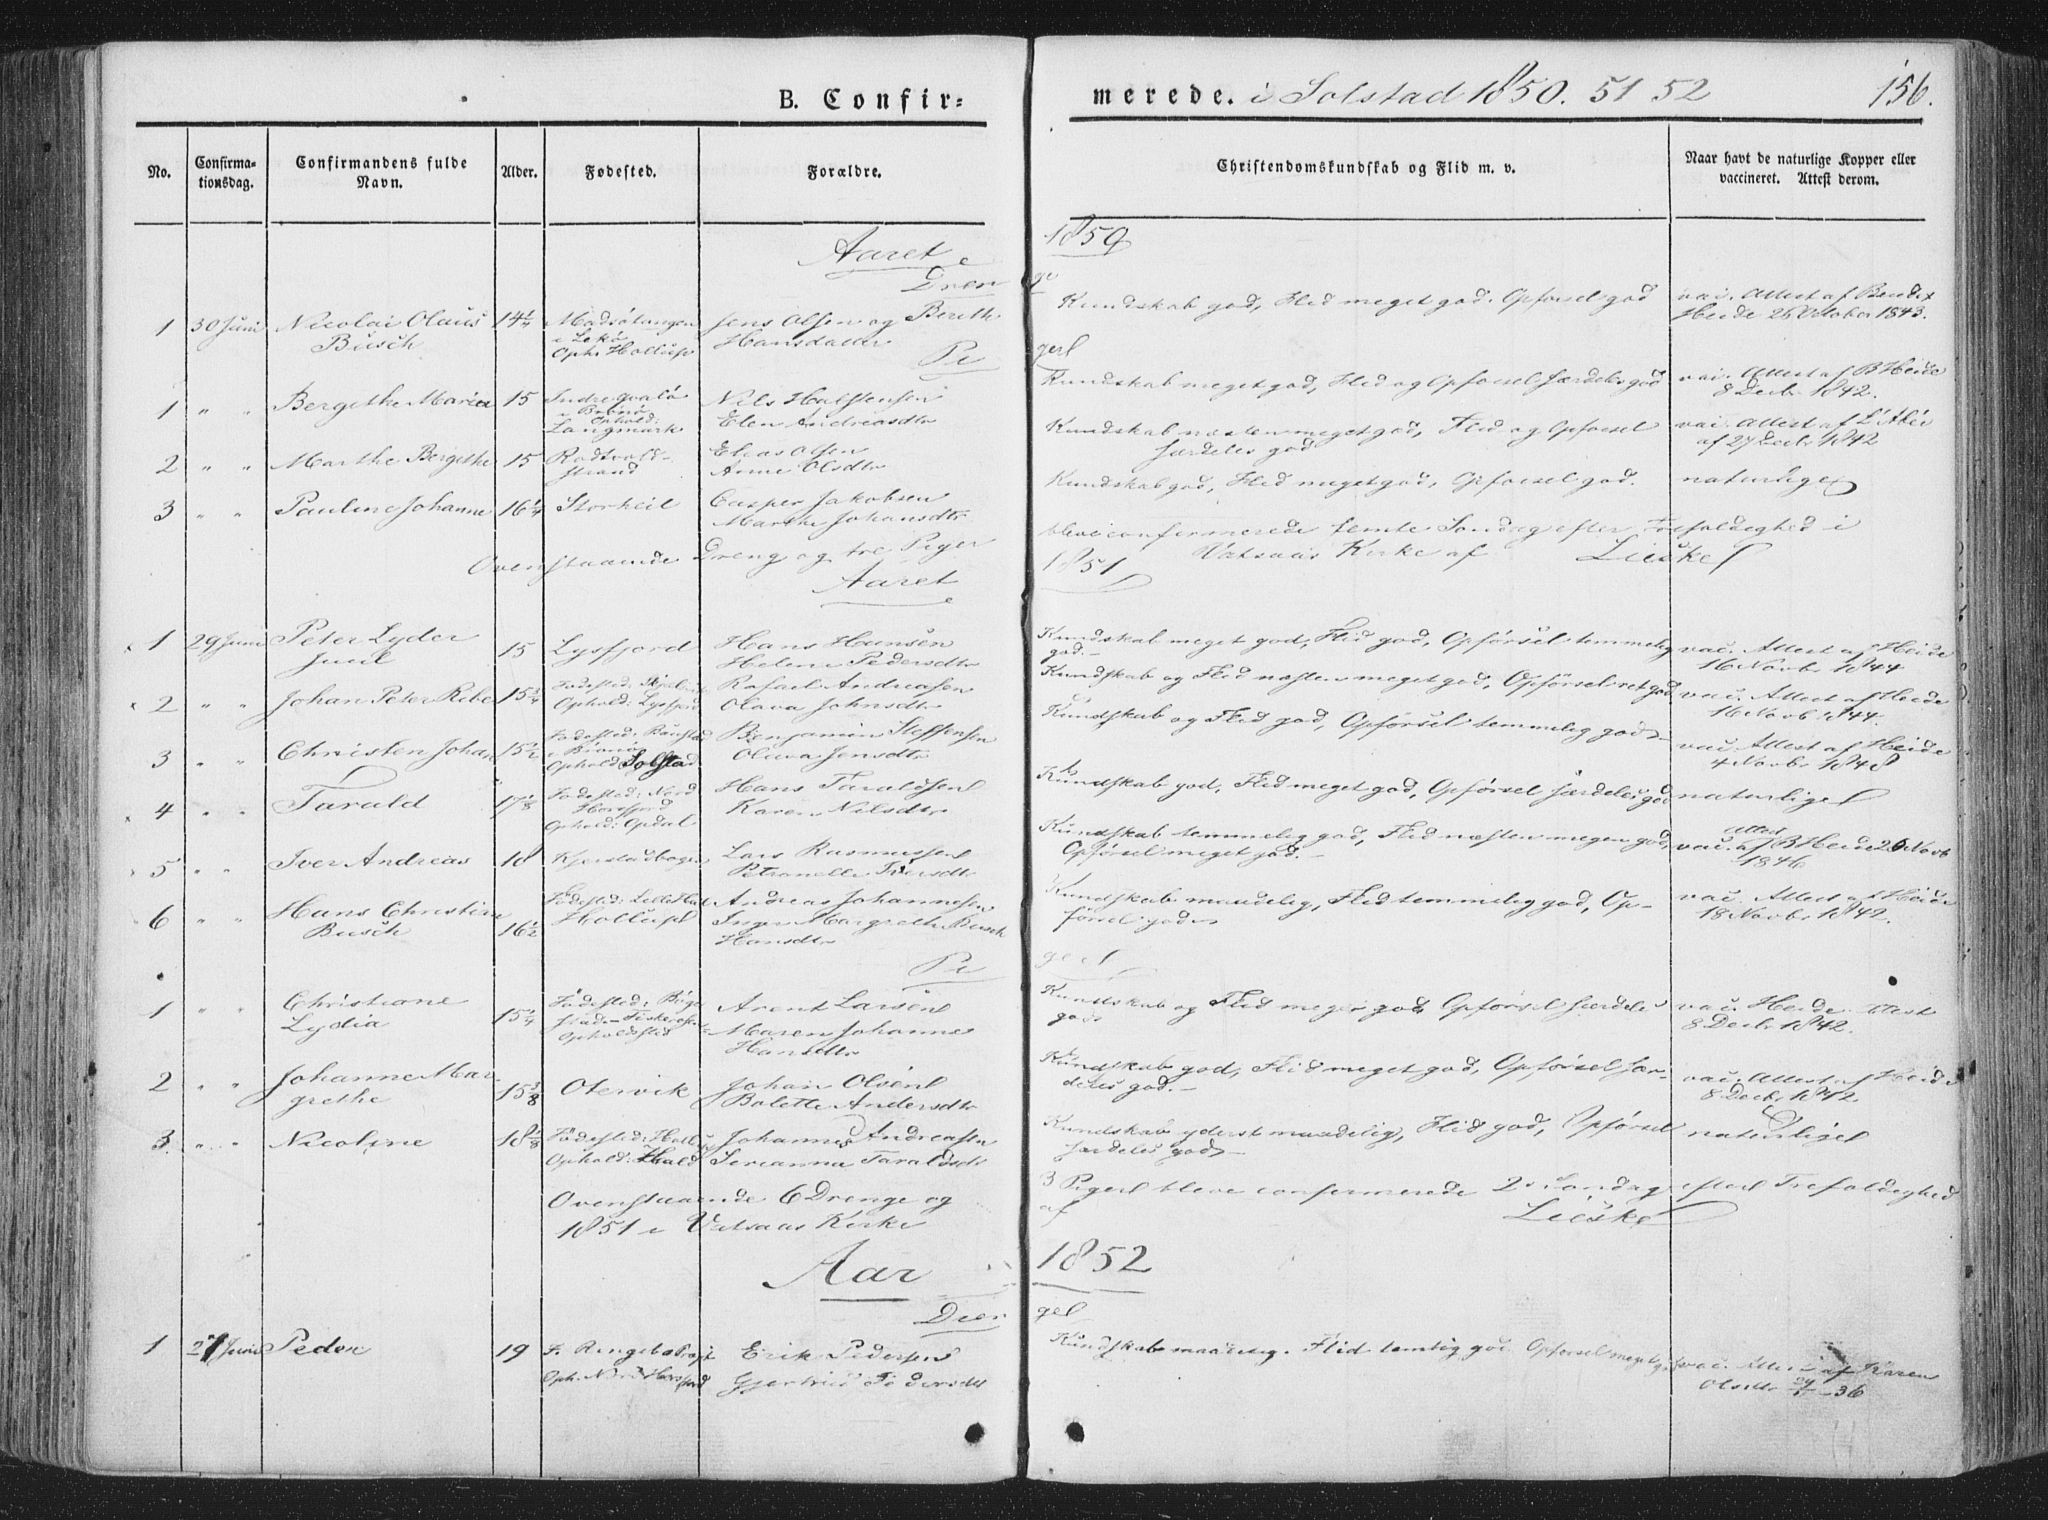 B. Confir=
merede. i Solstad 1850. 51 52
156.
No.
Confirma-
tionsdag.
Confirmandens fulde
Navn.
Alder.
Fødested.
Forældre.
Christendomskundskab og Flid m. v.
Naar havt de naturlige Kopper eller
vaccineret. Attest derom.
Aaret 1850
Drenge
1 30 Juni Nicolai Olaus 14¼ Madsötangen Jens Olsen og Berith Kundskab god, Flid meget god. Opførsel god vac. Attest af Bendix
Busch i Lekö Hansdatter Heide 26 October 1843.
Oph: Hollup
Piger
1 " " Bergithe Maria 15 Indre Nils Halstensen Kundskab meget god, Flid og Opførsel særdeles god vac. Attest af B Heide
i Brönö Elen Andreasdtr 8 Decbr 1842.
Ophold:
Langmark
2 " " Marthe Bergithe 15 Elias Olsen Kundskab næsten meget god, Flid og Opførsel vac. Attest af
strand Anne Olsdtr særdeles god af 27 Decbr 1842
3 " " Pauline Johanne 16¼ Storheil Casper Jakobsen Kundskab god, Flid meget god, Opførsel god. naturlige
Marthe Johansdtr
Ovenstaaende Dreng og tre Piger bleve confirmerede femte Søndag efter Trefoldighed i
Vatsaas Kirke af Lieske
Aaret 1851
1 29 Juni Peter Lyder 15 Lysfjord Hans Hansen Kundskab meget god, Flid god, Opførsel temmelig vac. Attest af Heide
Juul Helene Pedersdtr god.- 16 Novbr 1844
2 " " Johan Peter Ribe 15¾ Fødested: Rafael Andreasen Kundskab og Flid næsten meget god, Opførsel ret god vac. Attest af Heide
Ophold: Lysfjord Olava Johnsdtr 16 Novb 1844.
3 " " Christen Johan 15½ Fødested: Benjamin Steffensen Kundskab og Flid god, Opførsel temmelig god- vac. Attest af Heide
i Brönö Oliva Jensdtr 4 Novbr 1848
Ophold: Solstad
4 " " Tarald 17⅛ Fødested: Nord Hans Taraldsen Kundskab god, Flid meget god, Opførsel særdeles god naturlige
Horsfjord Karen Nilsdtr
Ophold: Opdal
5 " " Iver Andreas 18 Kjerstadbogen Lars Rasmussen Kundskab temmelig god, Flid næsten megen god, Attest
Petronelle Iversdtr Opførsel meget god.- vac. af B Heide 26 Novb
1846
6 " " Hans Christian 16½ Fødested: Andreas Johannesen Kundskab maadelig, Flid temmelig god, Op- vac. Attest af Heide
Busch Hollup Inger Margrethe Busch førsel god- 18 Novbr 1842.
Hansdtr
Piger
1 " " Christiane 15¼ Fødested: Arent Larsen Kundskab og Flid meget god, Opførsel særdeles vac. Heide Attest
Lydia Opholdssted Maren Johanne god. 8 Decbr 1842.
Hansdtr
2 " " Johanne Mar- 15⅜ Otervik Johan Olsen Kundskab god, Flid meget god, Opførsel sær- vac. Attest af Heide
grethe Bolette Andersdtr deles god.- 8 Decbr 1842
3 " " Nicoline 18⅛ Fødested: Johannes Andreasen Kundskab yderst maadelig, Flid god, Opførsel naturlige
Ophold: Hald Serianna Taraldsdtr særdeles god-
Ovenstaaende 6 Drenge og 3 Piger bleve confirmerede 2den Søndag efter Trefoldighed
1851 i Vatsaas Kirke af Lieske
Aar 1852
Drenge
1 27 Juni Peder 19 F. Ringebo Præst Erik Pedersen Kundskab maadelig. Flid temlig god. Opførsel meget god vac. Attest af Karen
Oph. Nord Horsfjord Gjertrud Pedersdtr Olsdtr 36